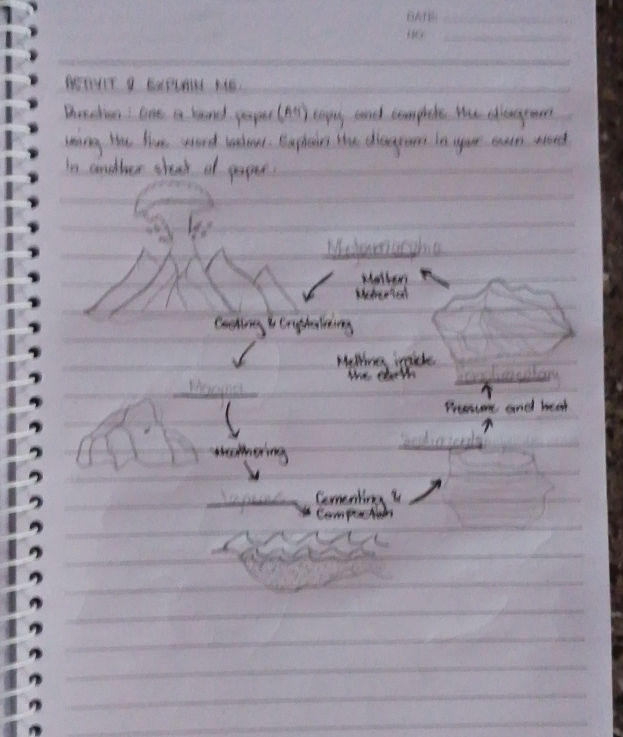 DATE:
NO:
ACTIVIT 2 EXPLAIN ME.
Direction: One a bond paper (A4) copy and complete the diagram
using the five word below. Explain the diagram in your own word
in another sheat of paper.
Metamorphic
Molten
Material
Cooling & Crystalizing
Melting inside
the earth
Sedimentary
Magma
Pressure and heat
Sediments
Weathering
Igneous
Cementing &
Compaction